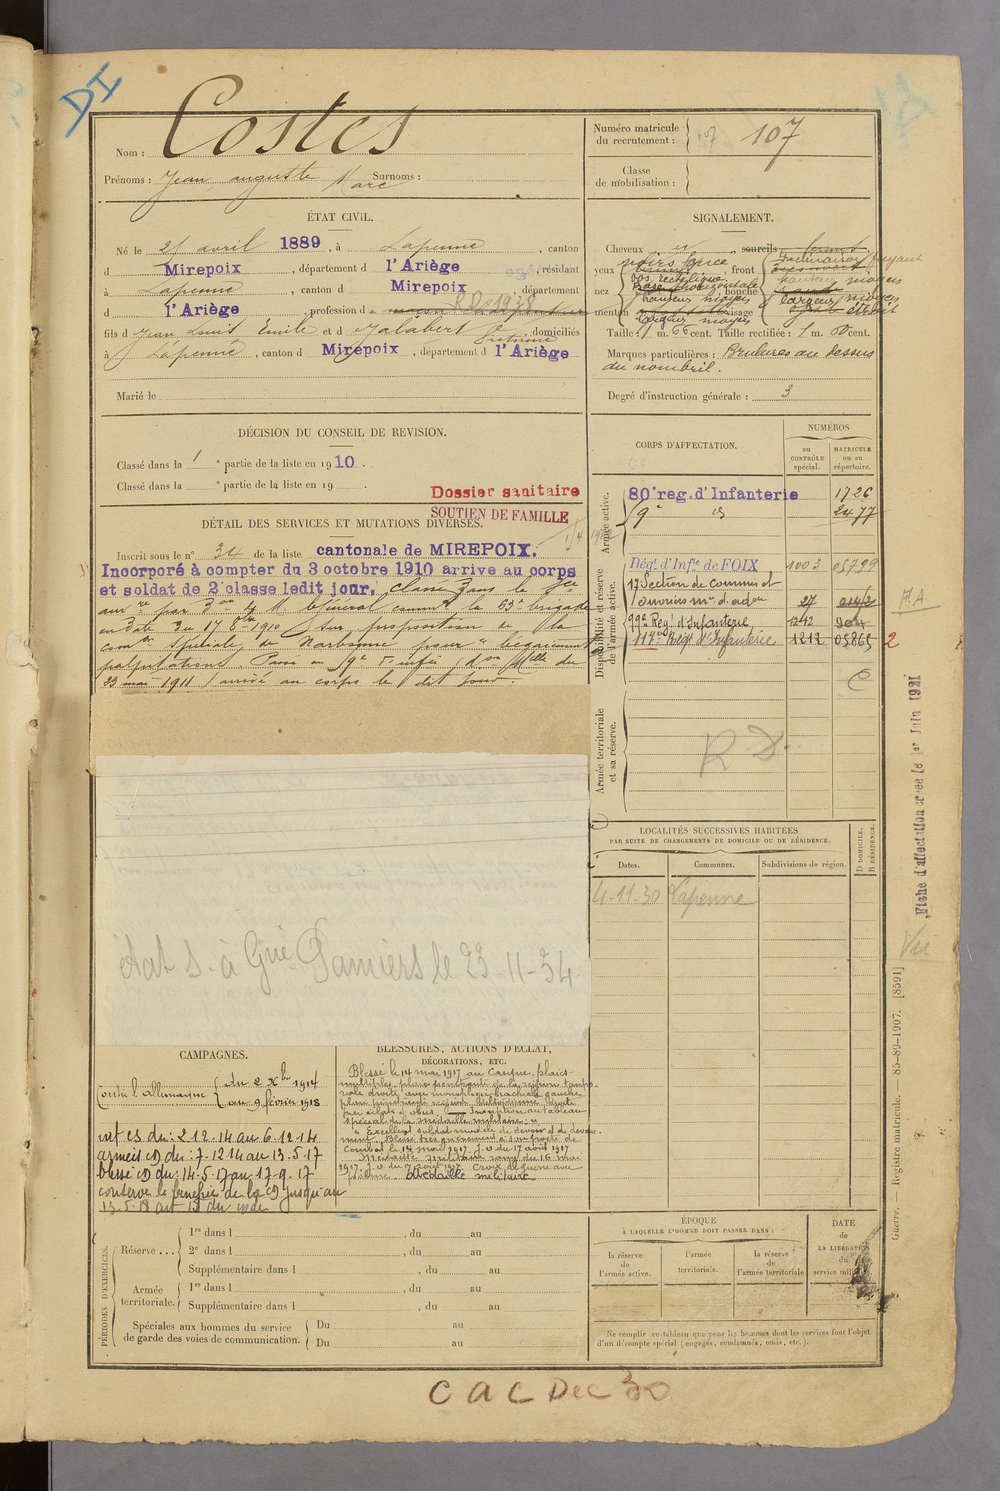 DI
Nom : Costes
Prénoms : Jean, auguste Marc Surnoms :
Numéro matricule du recrutement : 107 107
Classe de mobilisation :
ÉTAT CIVIL.
Né le 21 avril 1889, à Lapenne, canton
d Mirepoix, département d l'Ariège, résidant
à Lapenne, canton d Mirepoix, département
R D 1938
d l'Ariège, profession d
fils d Jean Louis Émile et d Jalabert, domiciliés
à Lapenne, canton d Mirepoix, département d l'Ariège
Marié le
SIGNALEMENT.
Cheveux noirs, sourcils
yeux, front
dos rectiligne
nez Base horizontale, bouche
hauteur moyen
menton, visage
largeur moyen
Taille : 1 m. 66 cent. Taille rectifiée : 1 m. cent.
Marques particulières : Brulures au dessus
du nombril.
Degré d'instruction générale : 3
DÉCISION DU CONSEIL DE REVISION.
Classé dans la 1 e partie de la liste en 1910.
Classé dans la e partie de la liste en 19 .
Dossier sanitaire
SOUTIEN DE FAMILLE
DÉTAIL DES SERVICES ET MUTATIONS DIVERSES.
Inscrit sous le n° 34 de la liste cantonale de MIREPOIX.
Incorporé à compter du 3 octobre 1910 arrive au corps
et soldat de 2e classe ledit jour. Classé dans le sce
aux re par Don du Gl Général command la 63e brigade
en date du 17 8bre 1910 sur proposition de la
com on spéciale de Narbonne pour " bégaiement
palpitations. Passé au 9e
23 mai 1911 arrivé au corps le dit jour.
CORPS D'AFFECTATION.
NUMÉROS
au CONTRÔLE spécial.
MATRICULE ou au répertoire.
Armée active.
80e reg. d'Infanterie 1726
9e d° 2477
Disponibilité et réserve de l'armée active.
Rég. d'Infie de FOIX 1003 05799
17 Section de Commis et
ouvriers mres d'adon 27
99e Reg. d'Infanterie 1212 904
114me Rég. d'Infanterie 1212 05865 2
F.A
Armée territoriale et sa réserve.
R D.
Fiche d'affectation créée le 1er Juin 1921
Vu
état S. à Gné Pamiers le 23-11-34
LOCALITÉS SUCCESSIVES HABITÉES
PAR SUITE DE CHANGEMENTS DE DOMICILE OU DE RÉSIDENCE.
Dates. Communes. Subdivisions de région. D DOMICILE. R RÉSIDENCE.
4-11-30 Lapenne
Guerre. — Registre matricule. 85-89-1907. [8591]
CAMPAGNES.
Contre l'Allemagne du 2 Xbre 1914
au 9 février 1918
int CS du : 2.12.14 au 6.12.14
armées CD du : 7.12.14 au 13.5.17
blessé CD du : 14.5.17 au 17.9.17
conserve le bénéfice de la CD jusqu'au
BLESSURES, ACTIONS D'ÉCLAT, DÉCORATIONS, ETC.
Blessé le 14 mai 1917 au Casque, plaies
multiples, plaie pénétrante de la région tempo-
rale droite avec monoplégie brachiale gauche
par éclats d'obus. Inscription au tableau
spécial de la médaille militaire :
"Excellent soldat modèle de devoir et de dévoue-
ment. Blessé très grièvement à son poste de
combat le 14 mai 1917. J.O du 17 août 1917
Médaille militaire rang du 16 mai
1917. J.O du 17 août 1917. Croix de guerre avec
palme. Médaille militaire
PÉRIODES D'EXERCICES.
Réserve ...
1re dans l , du au
2e dans l , du au
Supplémentaire dans l , du au
Armée territoriale.
1re dans l , du au
Supplémentaire dans l , du au
Spéciales aux hommes du service de garde des voies de communication.
Du au
Du au
ÉPOQUE
À LAQUELLE L'HOMME DOIT PASSER DANS :
la réserve de l'armée active.
l'armée territoriale.
la réserve de l'armée territoriale
DATE de LA LIBÉRATION du service militaire
Ne remplir ce tableau que pour les hommes dont les services font l'objet
d'un décompte spécial (engagés, condamnés, omis, etc.).
C A C Dec 30